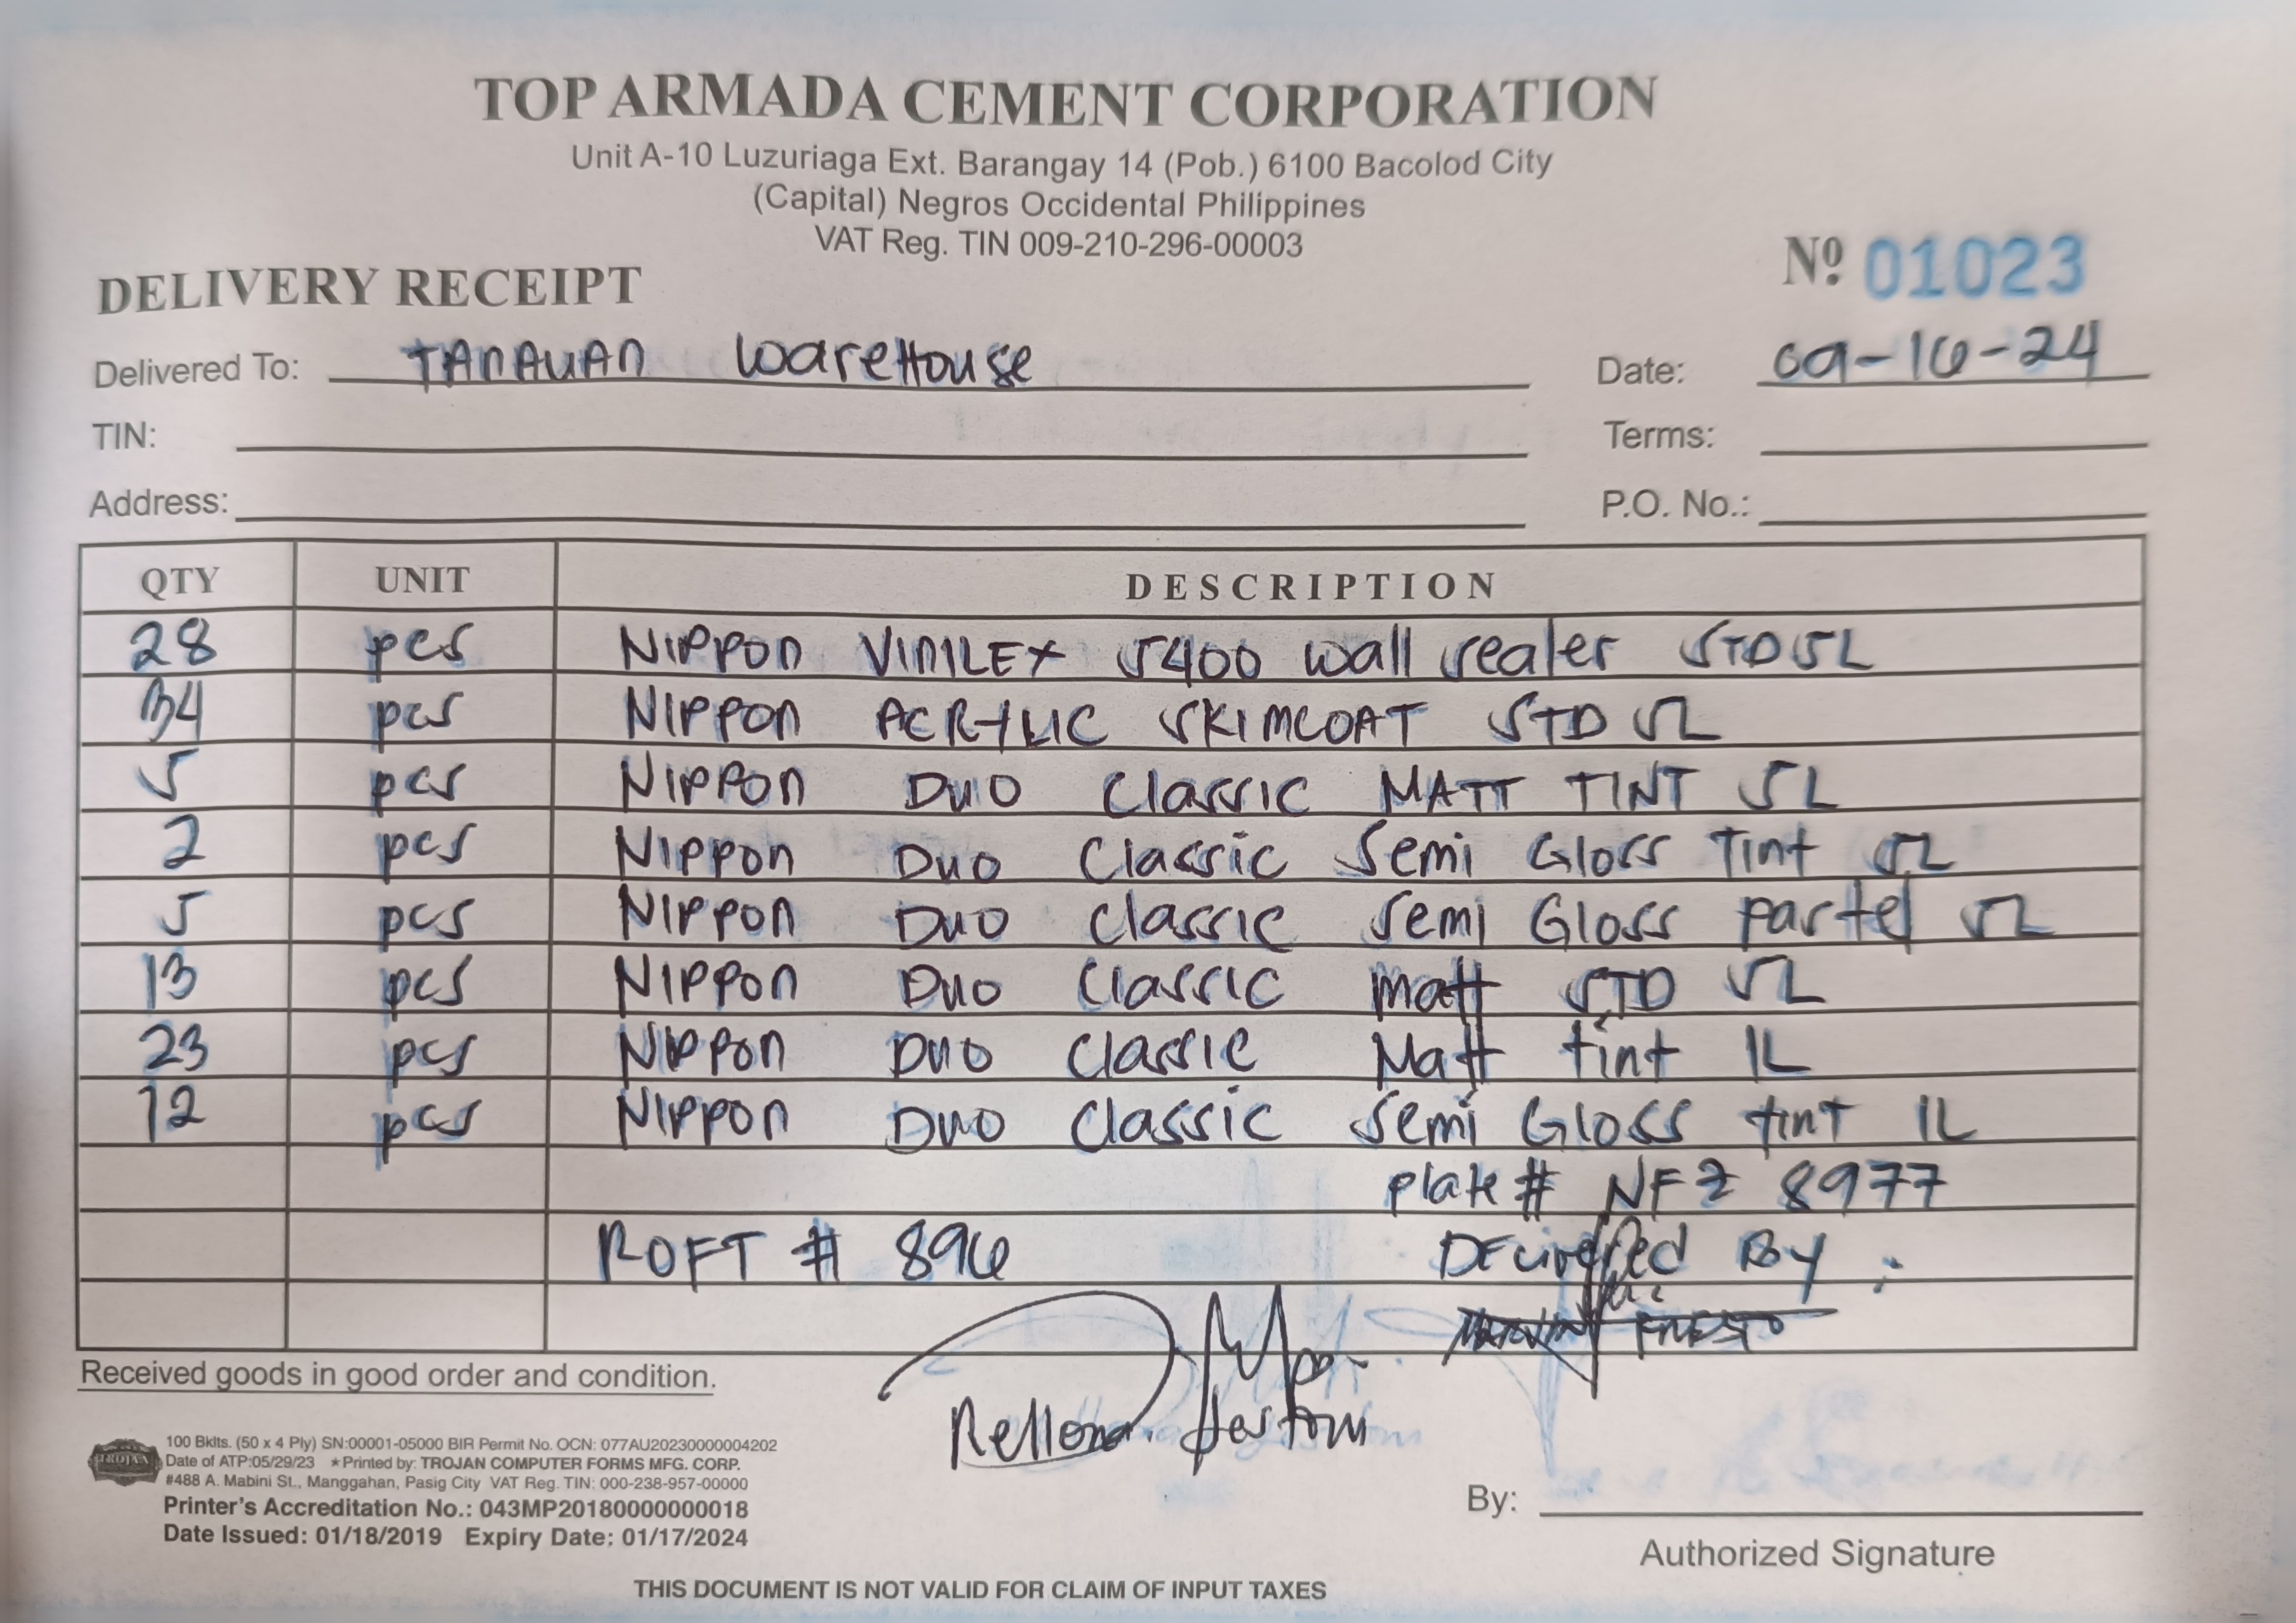 TOP ARMADA CEMENT CORPORATION
Unit A-10 Luzuriaga Ext. Barangay 14 (Pob.) 6100 Bacolod City
(Capital) Negros Occidental Philippines
VAT Reg. TIN 009-210-296-00003
DELIVERY RECEIPT Nº 01023
Delivered To: TANAUAN WareHouse Date: 09-16-24
TIN: Terms:
Address: P.O. No.:
QTY UNIT DESCRIPTION
28 pcs NIPPON VINILEX 5400 wall sealer STD 5L
34 pcs NIPPON ACRYLIC SKIMCOAT STD 5L
5 pcs NIPPON DUO Classic MATT TINT 5L
2 pcs NIPPON DUO Classic Semi Gloss Tint 5L
5 pcs NIPPON DUO Classic Semi Gloss pastel 5L
13 pcs NIPPON DUO Classic Matt STD 5L
23 pcs NIPPON DUO Classic Matt tint 1L
12 pcs NIPPON DUO Classic Semi Gloss tint 1L
plate # NFZ 8977
ROFT # 896 Delivered By :
Received goods in good order and condition.
TROJAN
100 Bklts. (50 x 4 Ply) SN:00001-05000 BIR Permit No. OCN: 077AU20230000004202
Date of ATP:05/29/23 ★Printed by: TROJAN COMPUTER FORMS MFG. CORP.
#488 A. Mabini St., Manggahan, Pasig City VAT Reg. TIN: 000-238-957-00000
Printer's Accreditation No.: 043MP20180000000018
Date Issued: 01/18/2019 Expiry Date: 01/17/2024
By:
Authorized Signature
THIS DOCUMENT IS NOT VALID FOR CLAIM OF INPUT TAXES